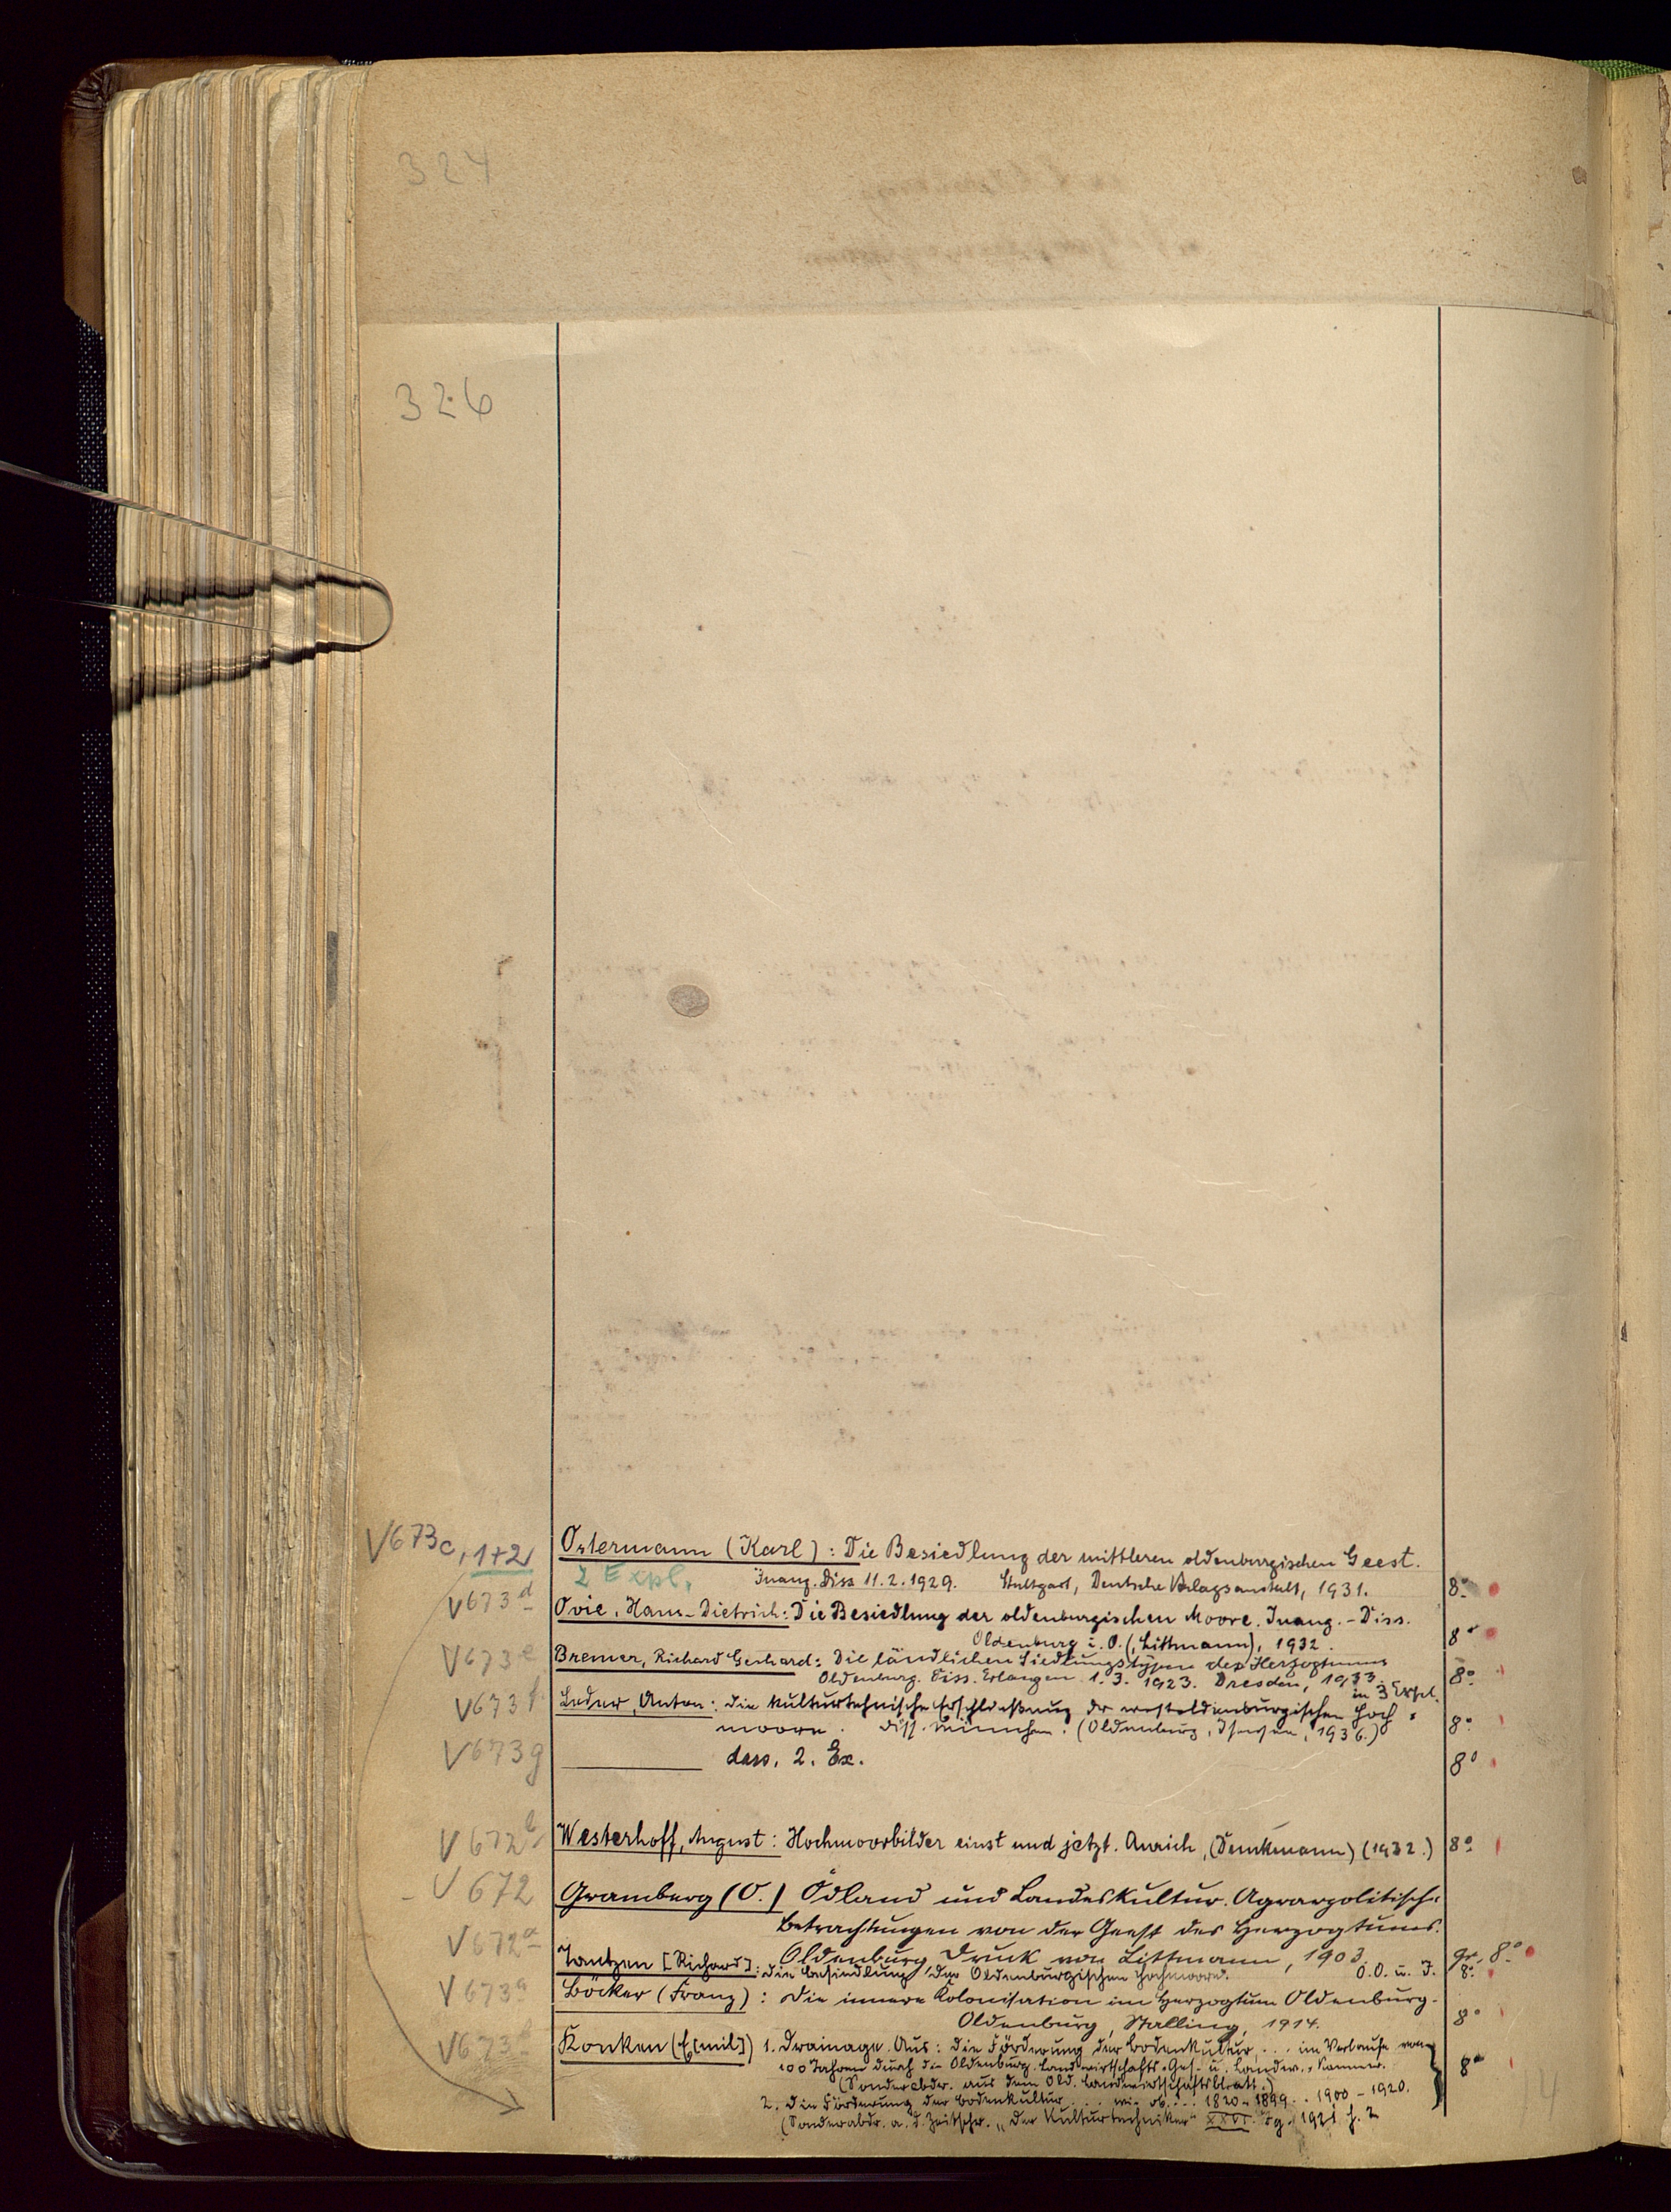 324
326
V673c, 1+2 Ostermann (Karl): Die Besiedlung der mittleren oldenburgischen Geest.
2 Expl. Inaug. Diss 11.2.1929. Stuttgart, Deutsche Verlagsanstalt, 1931. 8º
V673d Ovie, Hans-Dietrich: Die Besiedlung der oldenburgischen Moore. Inaug.-Diss.
Oldenburg i. O. (Littmann), 1932. 8º
V673e Bremer, Richard Gerhard: Die ländlichen Siedlungstypen des Herzogtums
Oldenburg. Diss. Erlangen 1.3.1923. Dresden, 1933. 8º
in 3 Expl.
V673f Leder, Anton: Die kulturtechnische Erschließung der westoldenburgischen Hoch-
moore. Diss. München. (Oldenburg, 1936.) 8º
V673g dass. 2. Ex. 8º
V672b Westerhoff, August: Hochmoorbilder einst und jetzt. Aurich, (Dunkmann) (1932.) 8º
V672 Gramberg (O.) Ödland und Landeskultur. Agrarpolitische
Betrachtungen von der Geest des Herzogtums.
Oldenburg, Druck von Littmann, 1903. gr. 8º
V672a Tantzen [Richard]: Die Besiedlung der Oldenburgischen Hochmoore. O.O. u. J. 8º
V673a Böcker (Franz): Die innere Kolonisation im Herzogtum Oldenburg.
Oldenburg, Stalling, 1914. 8º
V673b Konken (E[mil]) 1. Drainage. Aus: Die Förderung der Bodenkultur, ... im Verlaufe von
100 Jahren durch die Oldenburg. Landwirtschafts-Ges. u. Landw.-Kammer. 8º
(Sonderabdr. aus dem Old. Landwirtschaftsblatt.)
2. Die Förderung der Bodenkultur ... wie ob. ... 1820-1899 .. 1900-1920.
(Sonderabdr. a. d. Zeitschr. „Der Kulturtechniker" XXIV. Jg. 1921 H. 2